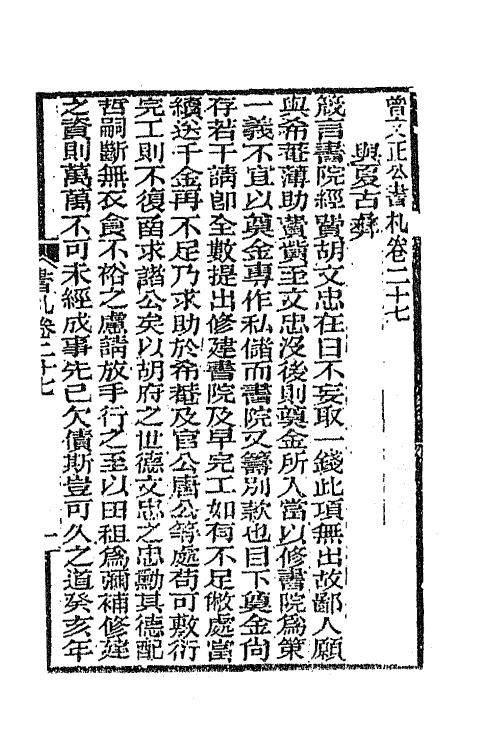 曾文正公書札卷二十七
與夏古彝
箴言書院經費胡文忠在日不妄取一錢此項無出故鄙人願
與希菴薄助貲貲至文忠沒後則奠金所入當以修書院爲第
一義不宜以奠金專作私儲而書院又籌別款也目下奠金尚
存若干請卽全數提出修建書院及早完工如有不足敝處當
續送千金再不足乃求助於希菴及官公唐公等處苟可敷衍
完工則不復留求諸公矣以胡府之世德文忠之忠勳其德配
哲嗣斷無衣食不裕之慮請放手行之至以田租爲彌補修建
之資則萬萬不可未經成事先已欠債斯豈可久之道癸亥年
書札卷二十七
一